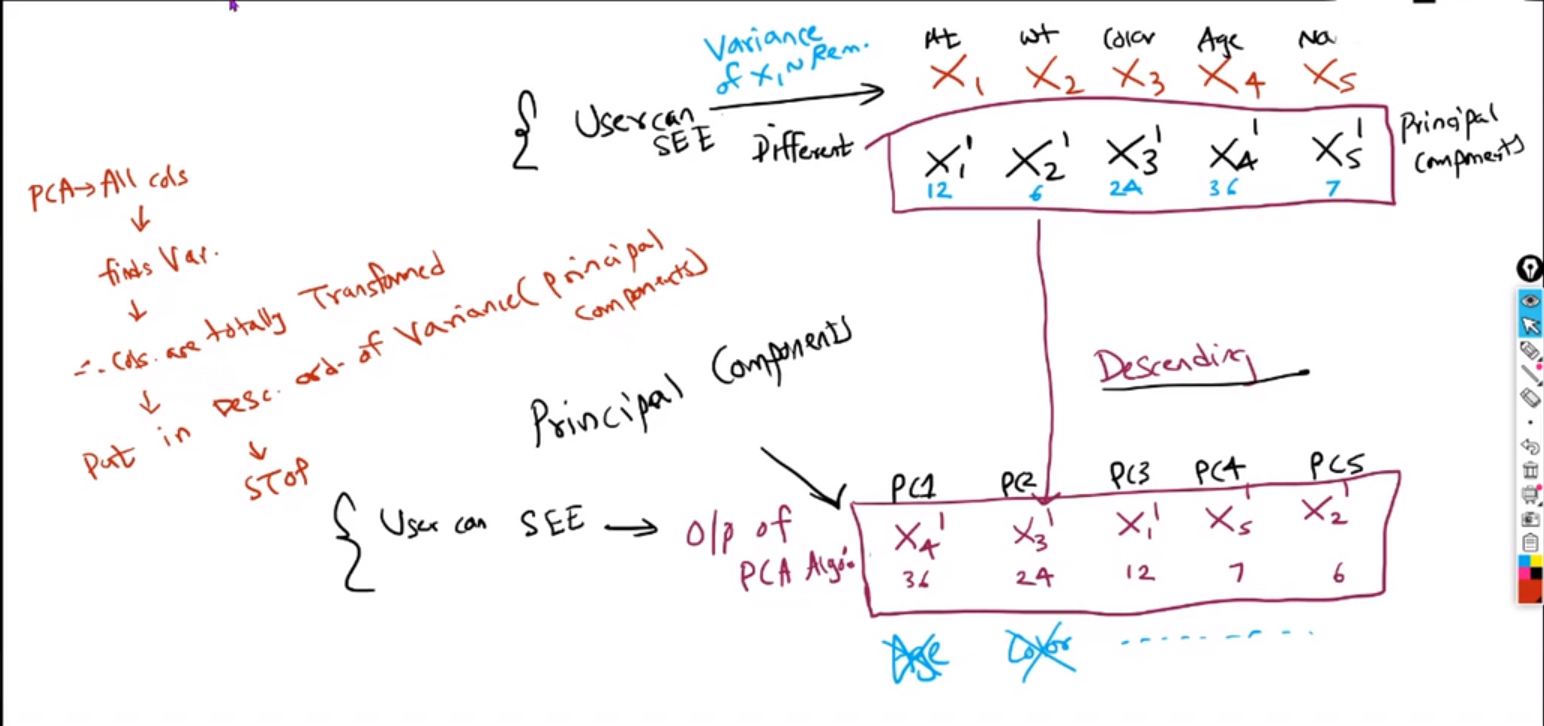 Variance
of X₁ ~ Rem.
Ht wt Color Age No
X₁ X₂ X₃ X₄ X₅
{ User can
SEE
Different
X₁' X₂' X₃' X₄' X₅'
12 6 24 36 7
Principal
Components
PCA→All cols
↓
finds Var.
↓
∴ Cols. are totally Transformed
↓
Put in Desc. ord. of Variance (Principal
Components)
↓
STOP
Principal Components
Descending
{ User can SEE → O/p of
PCA Algo:
PC1 PC2 PC3 PC4 PC5
X₄' X₃' X₁' X₅' X₂'
36 24 12 7 6
Age Color